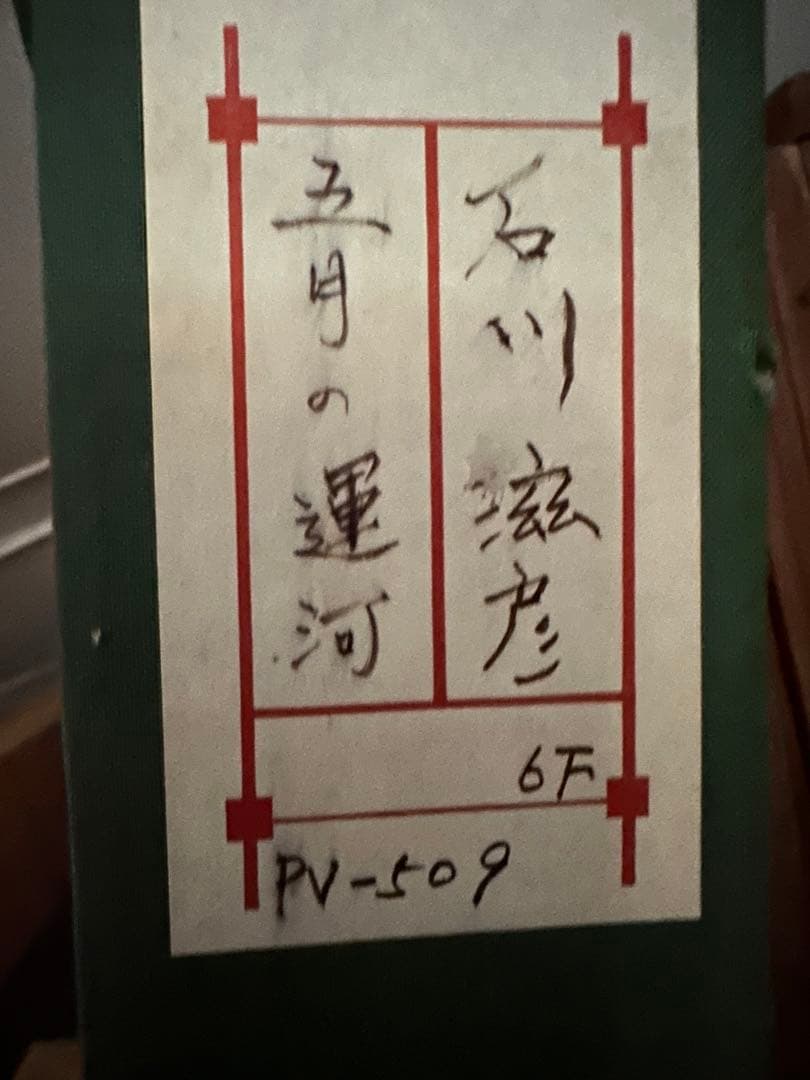 石川滋彦
五月の運河
6F
PV-509